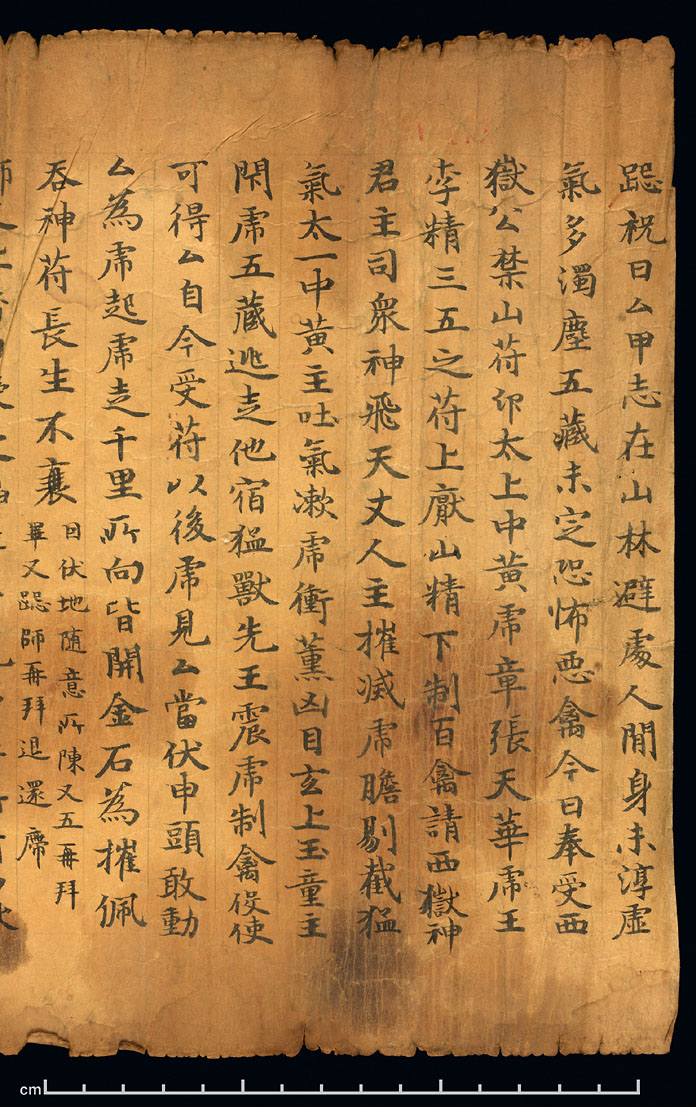 跽祝曰厶甲志在山林避處人閒身未淳虛
氣多濁塵五藏未定恐怖惡禽今日奉受西
嶽公禁山苻卬太上中黃席章張天華席王
李精三五之苻上厭山精下制百禽請西嶽神
君主司衆神飛天丈人主摧滅席膽剔截猛
氣太一中黃主吐氣漱席衝薰凶目玄上玉童主
閇席五藏逃走他宿猛獸先王震席制禽伇使
可得厶自今受苻以後席見厶當伏申頭敢動
厶為席起席走千里所向皆開金石為摧佩
吞神苻長生不衰
因伏地随意所陳又五再拜
畢又跽師再拜退還席
cm